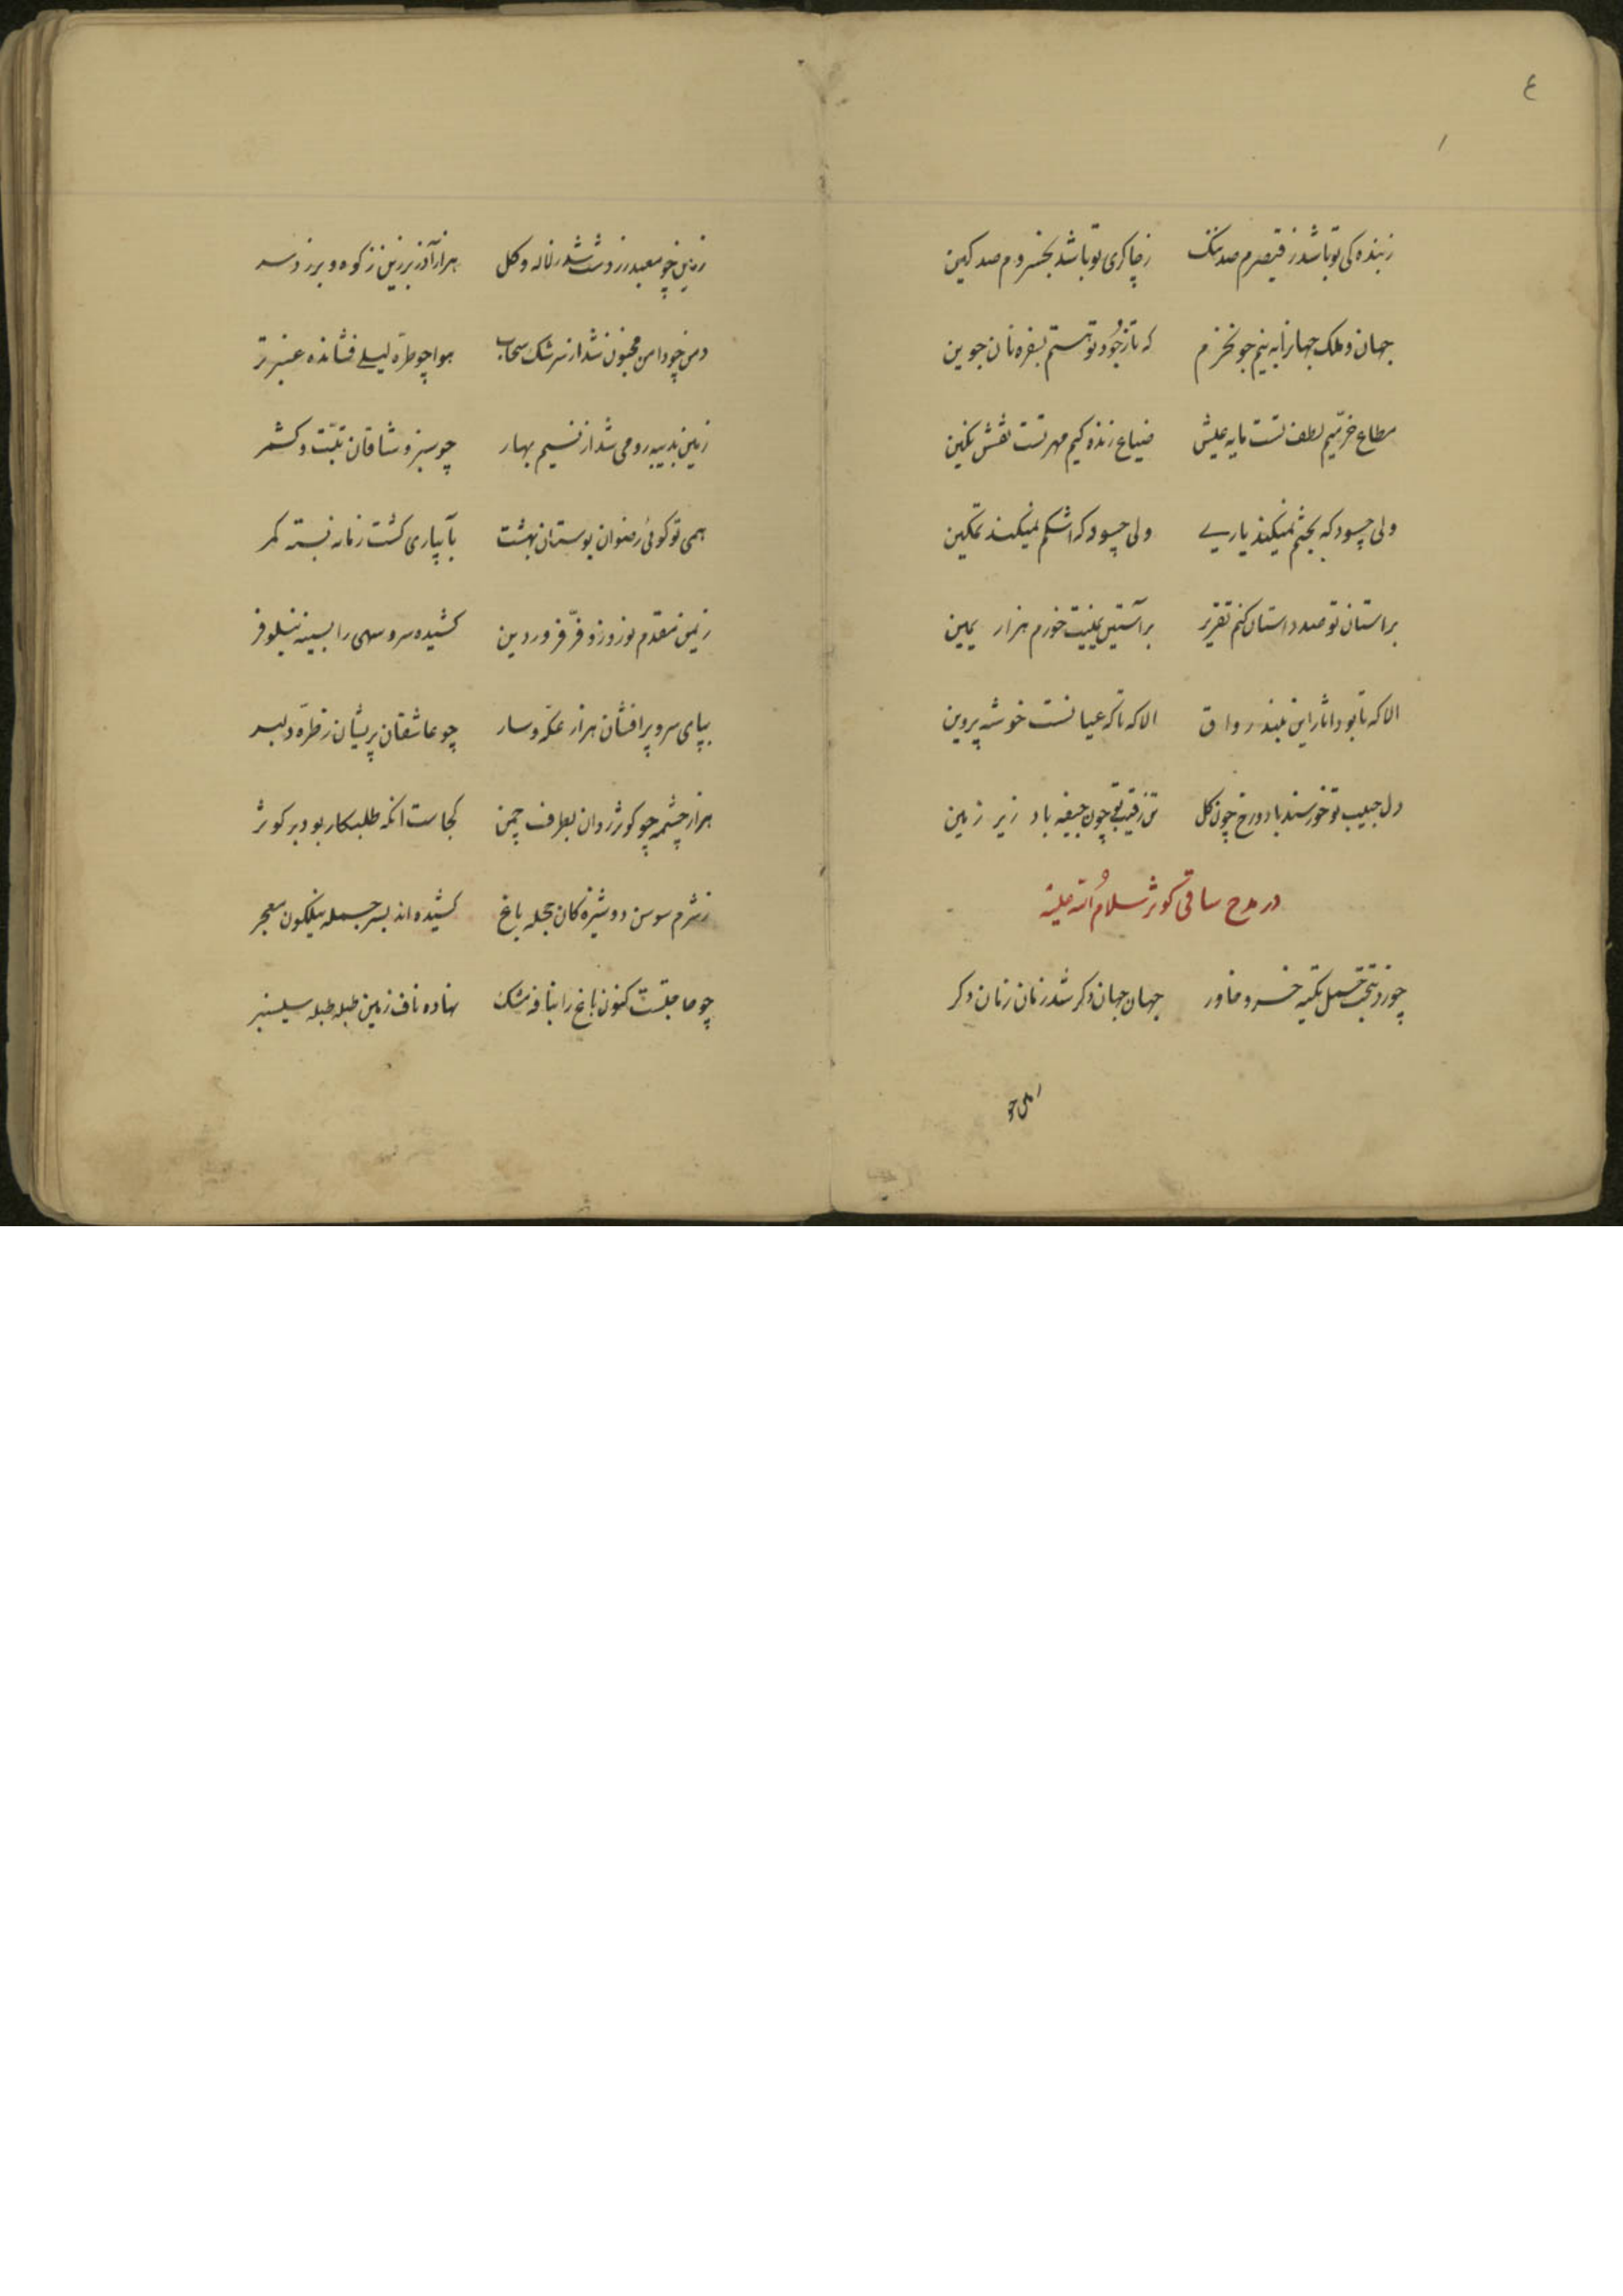 ٤
ز بنده کی تو باشد ز قیصرم صد ننک زچاکری تو باشد بخسروم صد کین
جهان و ملک جهانرا به نیم جو نخرم که تا ز جُود تو هستم بسفره نان جوین
مطاع خرّمیم لطف تست مایه عیش ضیاع زنده کیم مهر تست نقش نکین
ولی چسود که بختم نمیکند یاریے ولی چسود که اشکم نمیکند تمکین
براستان تو صد داستان کنم تقریر برآستین یمینت خورم هزار یمین
الا که تا بود اثار این بلند رواق الا که تا که عیانست خوشه پروین
دل حبیب تو خورسند باد و رخ چون کل تن رقیب تو چون جیفه باد زیر زمین
در مدح ساقی کوثر سلامُ الله علیه
چو زد بتخت حمل تکیه خسرو خاور جهان جهان دکر شد زمان زمان دکر
زمین چو معبد زردشت شد ز لاله و کل هزار آذر برزین ز کوه و برزد سر
دمن چو دامن مجنون شد از سرشک سحاب هوا چو طرّه لیلے فشانده عنبر تر
زمین بدیبه رومی شد از نسیم بهار چو سبز و شاقان تبّت و کشمر
همی تو کوئی رضوان بوستان بهشت بآبیاری کشت زمانه بسته کمر
ز یمن مقدم نوروز و فرّ فروردین کشیده سرو سهی را بسینه نیلوفر
بپای سرو پرافشان هزار عکّه و سار چو عاشقان پریشان ز طرّه دلبر
هزار چشمه چو کوثر روان بطرف چمن کجاست انکه طلبکار بود بر کوثر
ز شرم سوسن دوشیزه کان حجله باغ کشیده اند بسر جمله نیلکون معجر
چو حاجتست کنون باغ را بنافه مشک نهاده ناف زمین طبله طبله سیسنبر